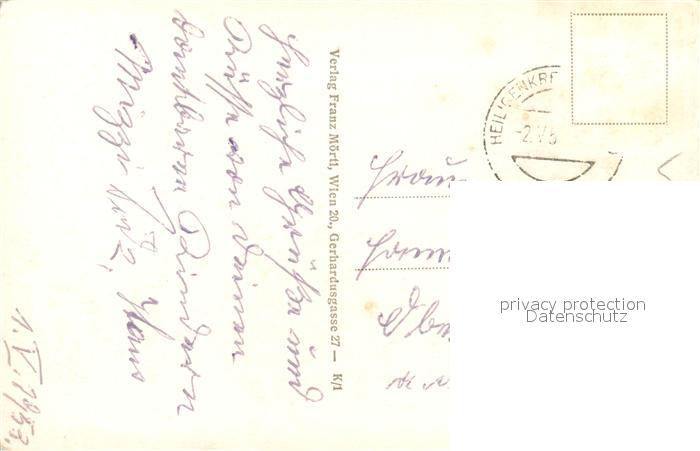 Herzliche Grüße und
Küsse von Deinen
dankbaren Kindern
Mizzi Hans
1. V. 1953.
Verlag Franz Mörtl, Wien 20., Gerhardusgasse 27 — K/1
HEILIGENKRE
-2.V.5
Frau
privacy protection
Datenschutz